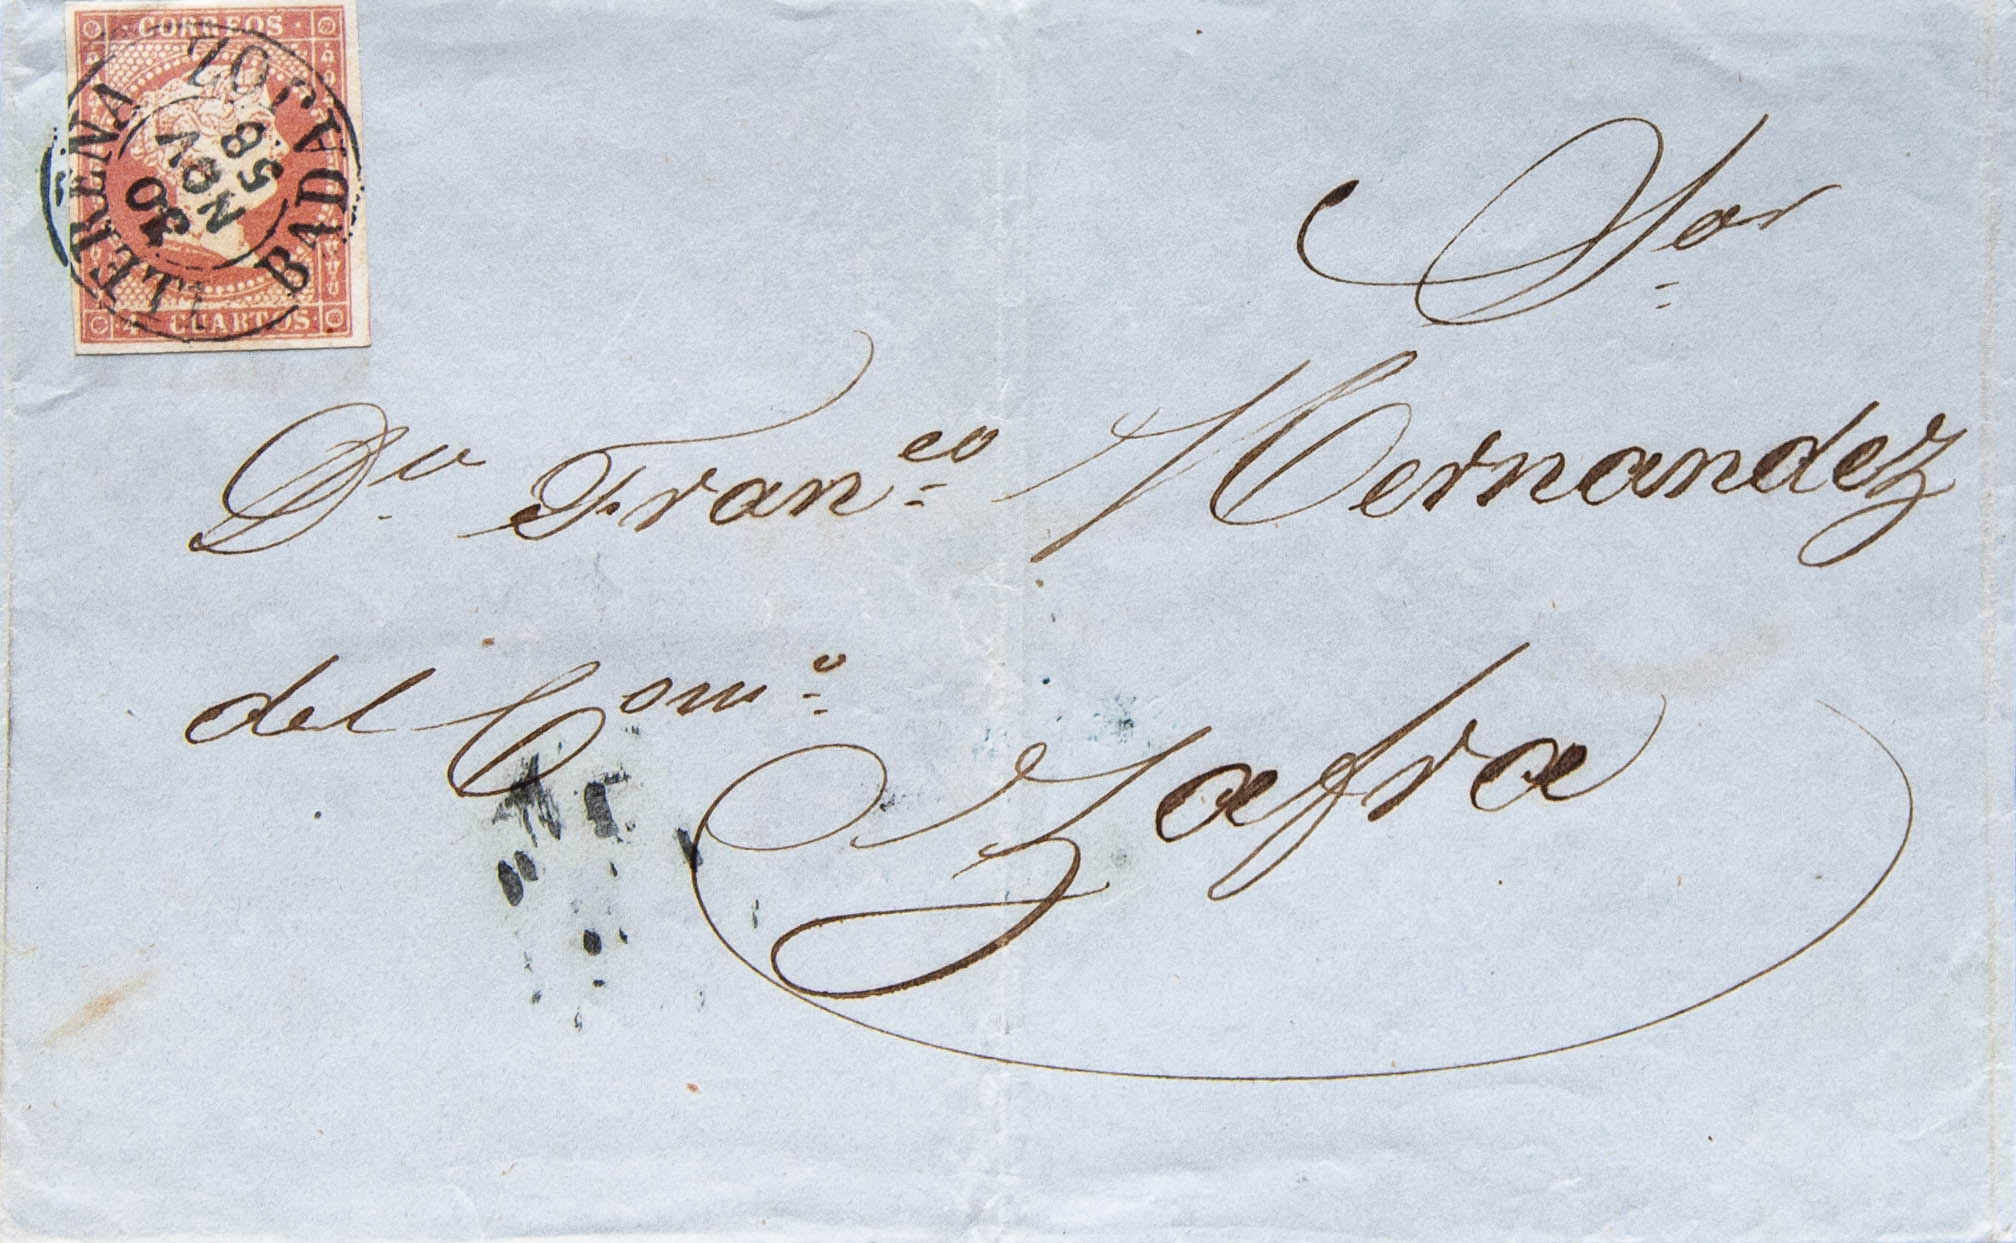 CORREOS
LLERENA
BADAJOZ
30
NOV
58
4 CUARTOS
Sor
Dn Franco Hernandez
del Como
Zafra